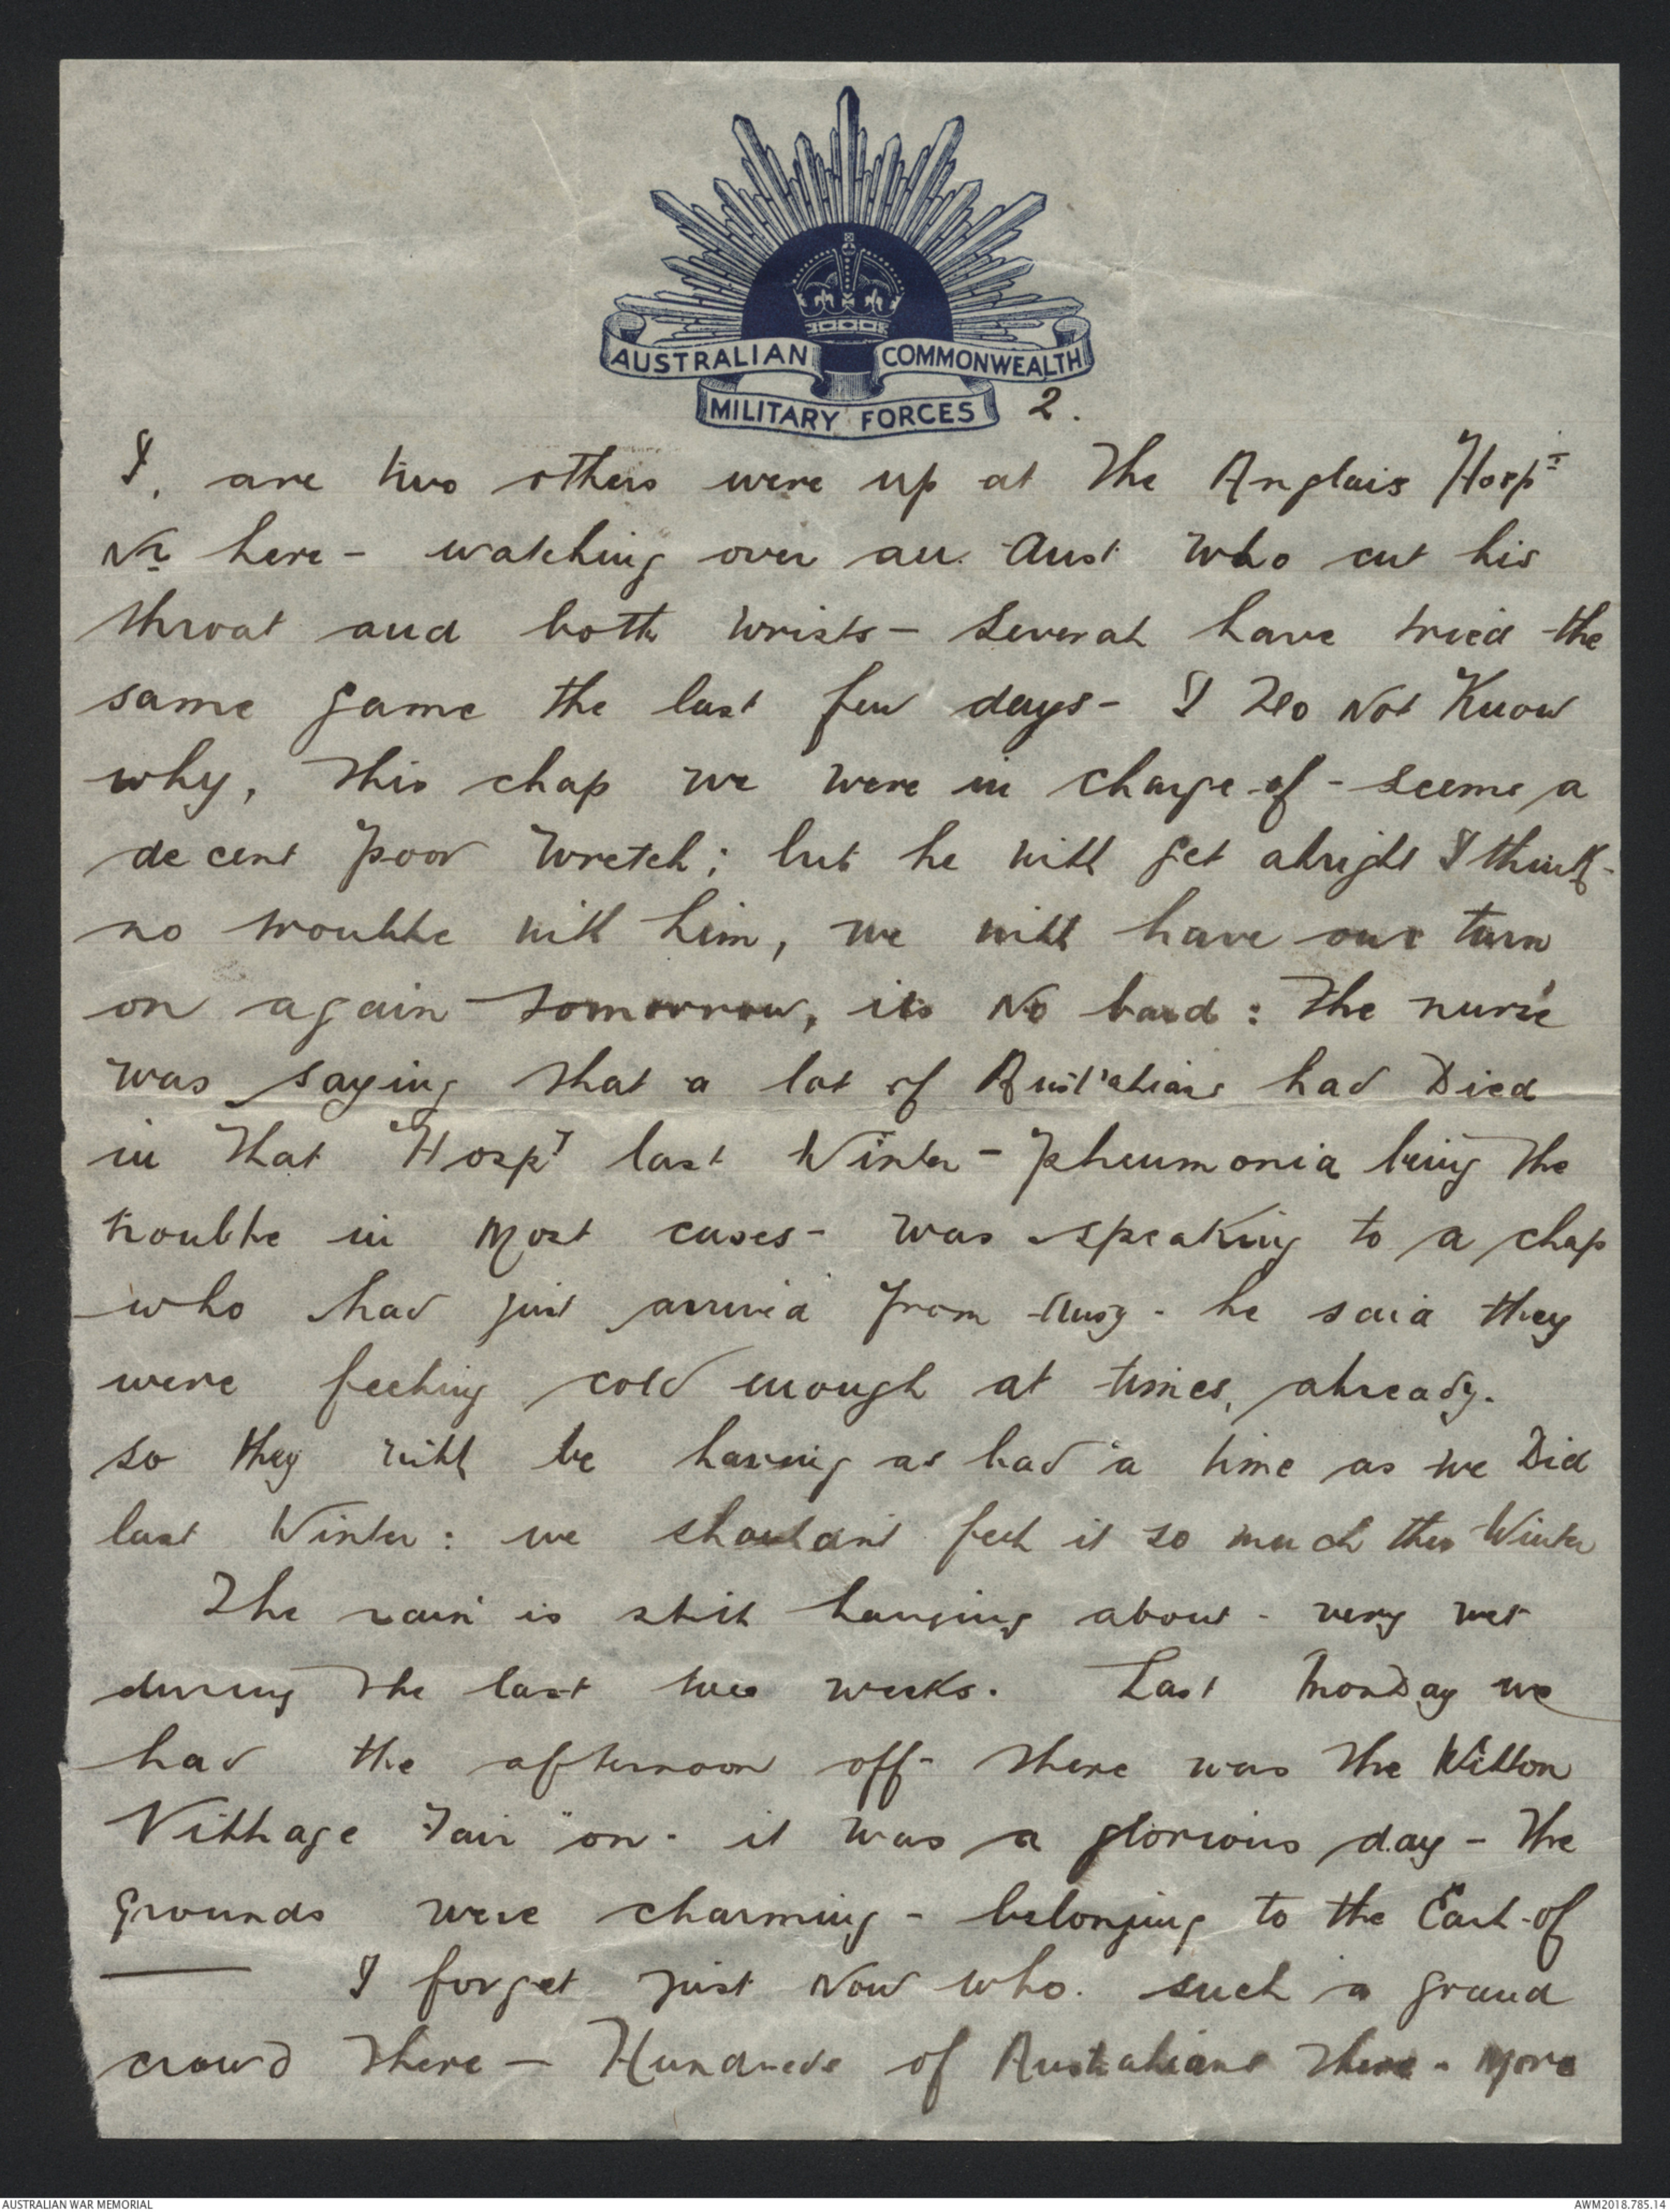 AUSTRALIAN COMMONWEALTH
MILITARY FORCES 2.
I, are two others were up at the Anglais Hospt
Nr here - watching over an. Aust who cut his
throat and both wrists - several have tried the
same game the last few days - I Do Not Know
why, this chap we were in charge of - seems a
decent poor wretch; but he will get alright I think -
no trouble with him, we will have our turn
on again tomorrow, its No : the nurse
was saying that a lot of Aust'alians had Died
in that Hospt last Winter - pneumonia being the
trouble in most cases - was speaking to a chap
who had just arrived from Ausy - he said they
were feeling cold enough at times, already.
so they will be having as bad a time as we Did
last Winter : we shouldn't feel it so much this Winter
The rain is still hanging about - very wet
during the last two weeks. Last Monday we
had the afternoon off - there was the Wilton
Village Fair "on - it was a glorious day - the
grounds were charming - belonging to the Earl of
—— I forget just Now who. such a grand
crowd there — Hundreds of Australians there - more
AUSTRALIAN WAR MEMORIAL
AWM2018.785.14